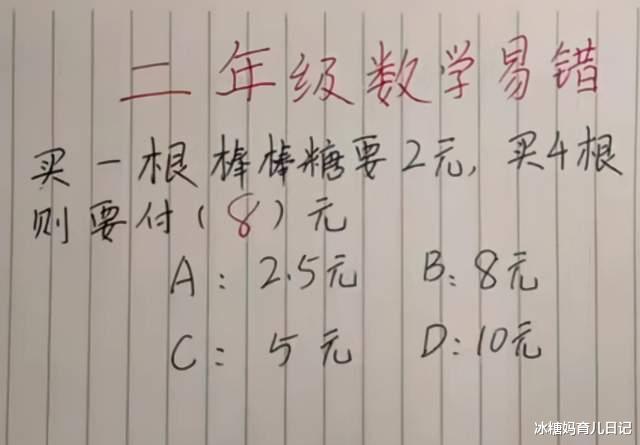 二年级数学易错
买一根棒棒糖要2元,买4根
则要付(8)元
A:2.5元 B:8元
C:5元 D:10元
冰糖妈育儿日记